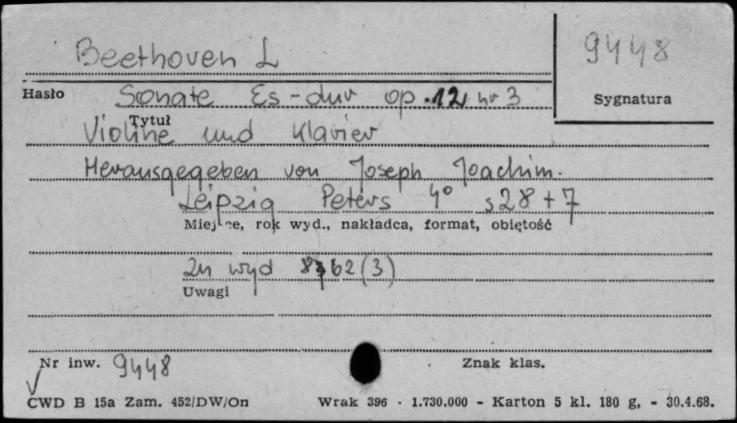 Beethoven L
9448
Hasło
Sonate Es-dur op. 12 nr 3
Sygnatura
Tytuł
Violine und Klavier
Herausgegeben von Joseph Joachim.
Leipzig Peters 4° s 28 + 7
Miejsce, rok wyd., nakładca, format, objętość
Zn wyd 8762 (3)
Uwagi
Nr inw. 9448
Znak klas.
CWD B 15a Zam. 452/DW/On Wrak 396 - 1.730.000 - Karton 5 kl. 180 g, - 30.4.68.